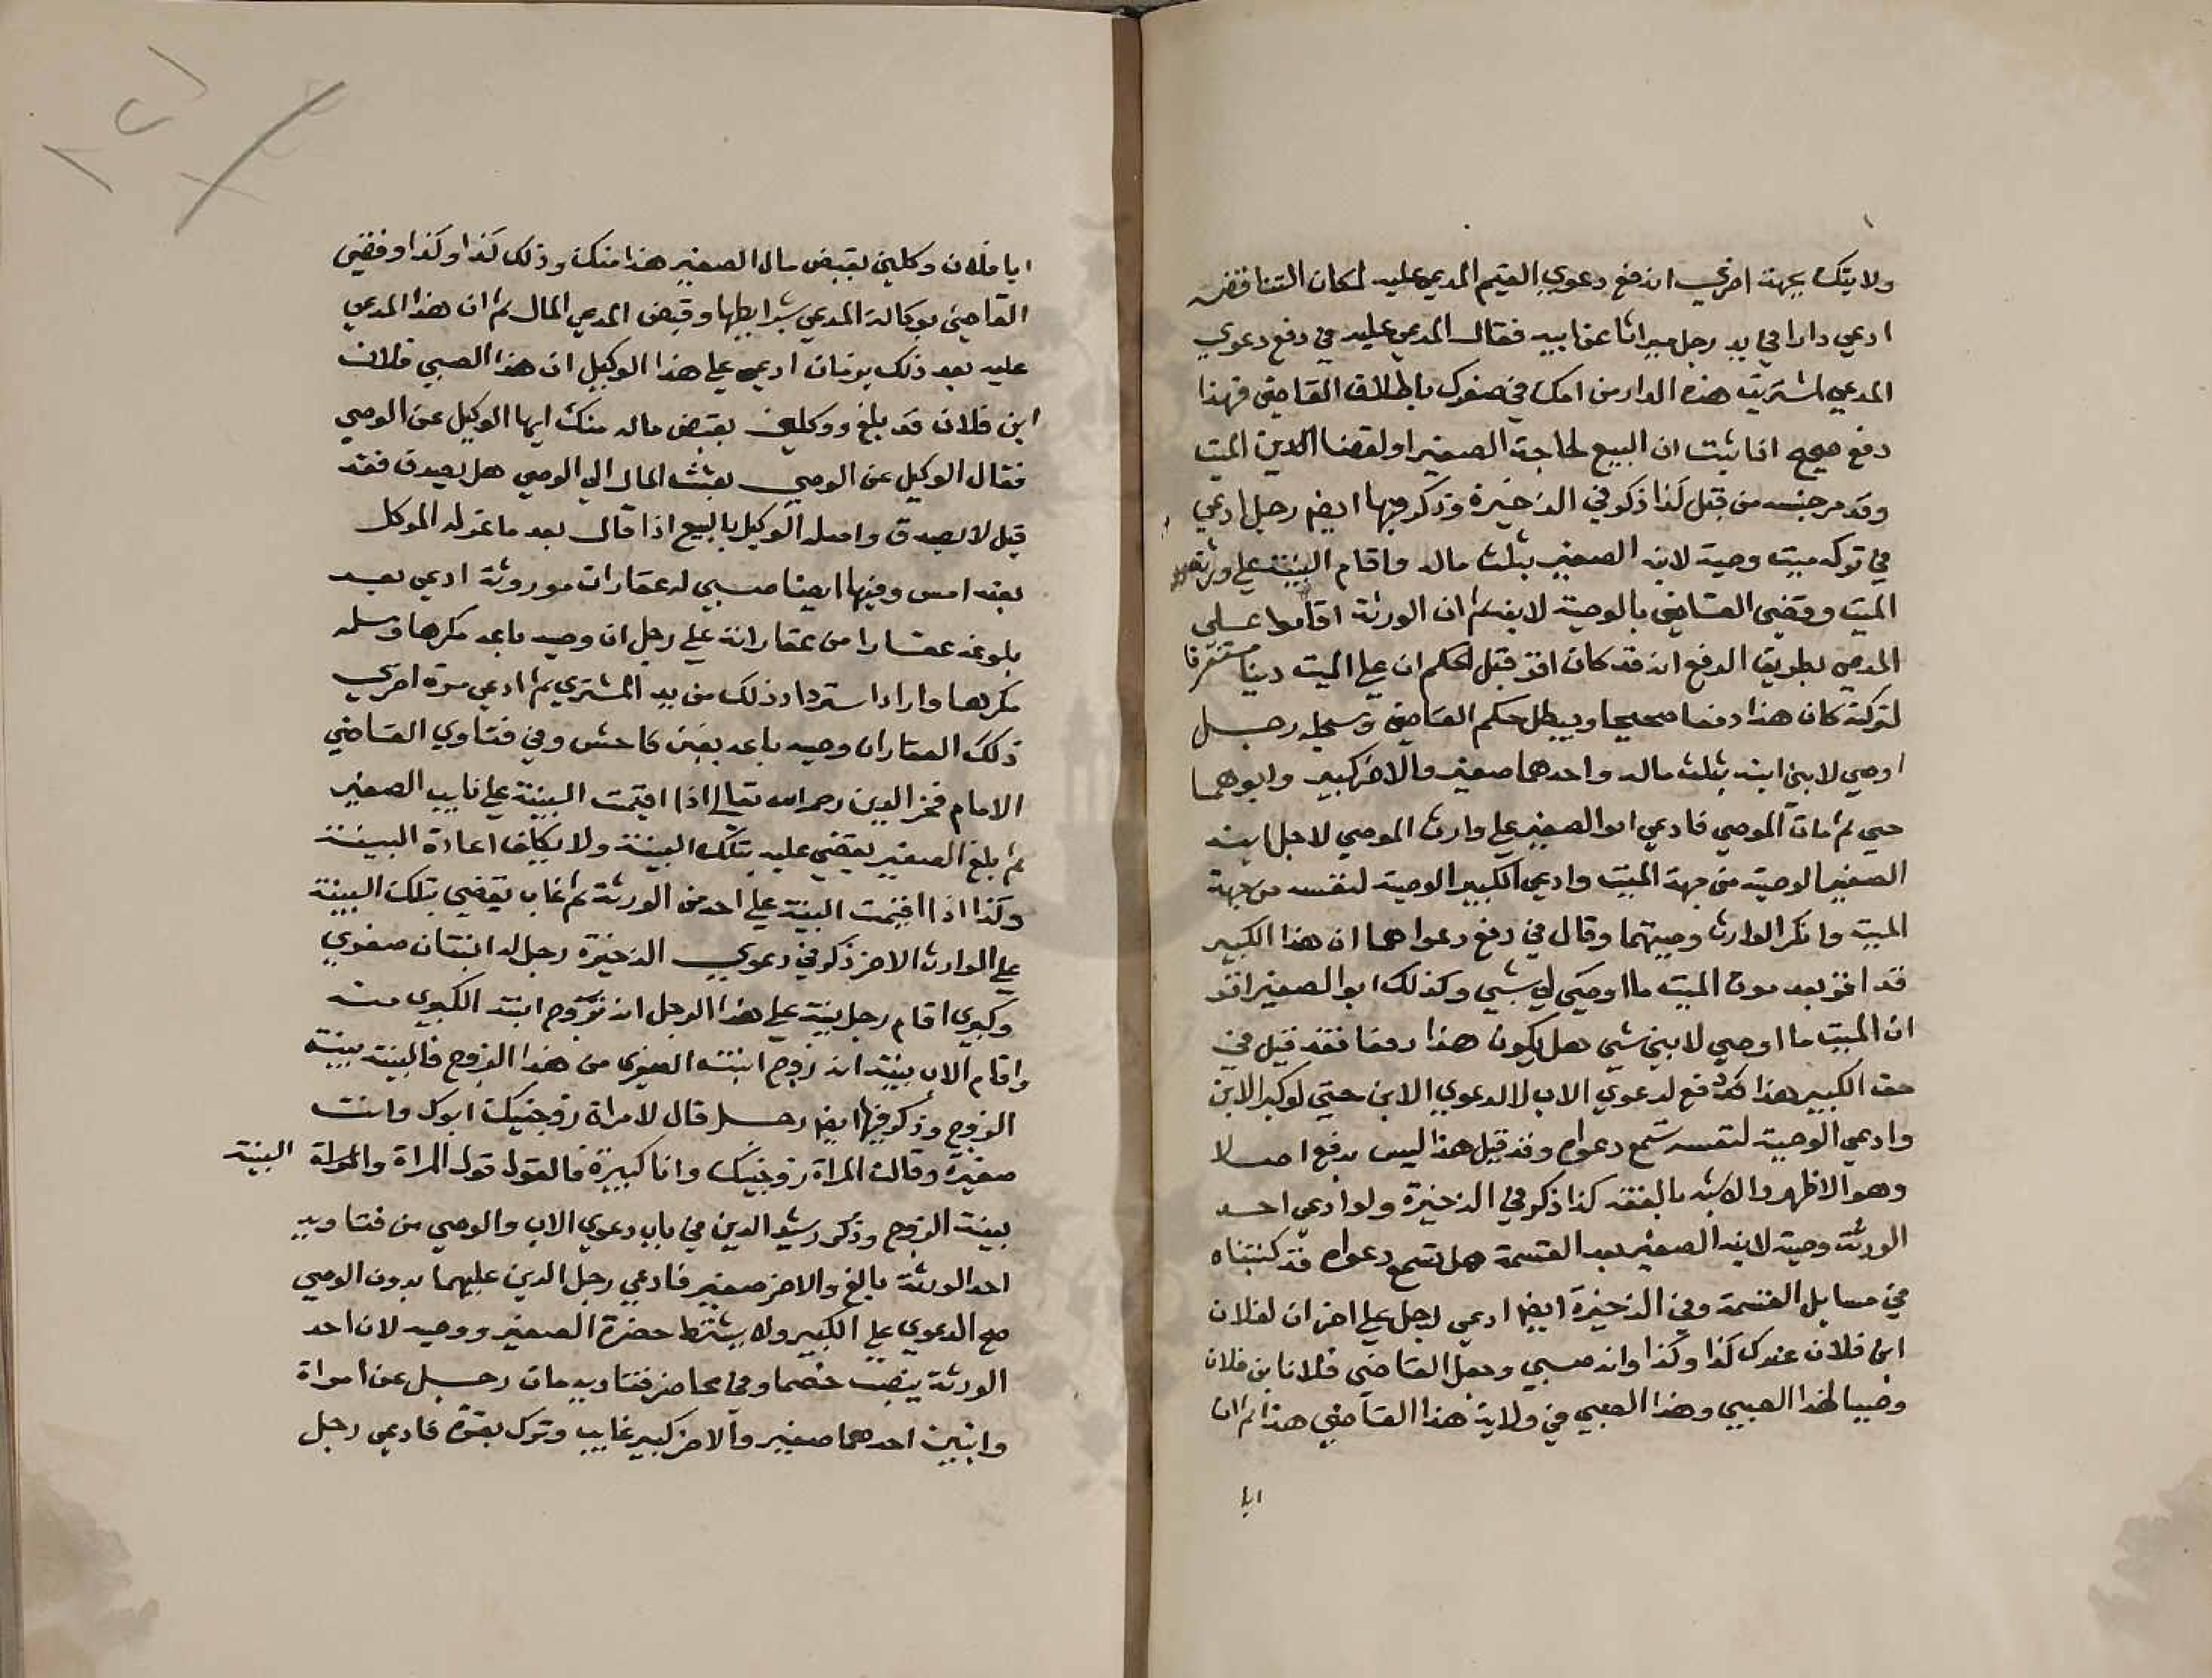 ولا يتك بجهة اخري اندفع دعوي القيم المدعي عليه لمكان التناقض
ادعي دارا في يد رجل ميراثا عن ابيه فقال المدعي عليه في دفع دعوي
المدعي اشتريت هذه الدار من امك في صغرك باطلاق القاضي فهذا
دفع صحيح اذا ثبت ان البيع لحاجة الصغير او لقضا الدين الميت
وقد مر جنسه من قبل كذا ذكر في الذخيرة وذكر فيها ايضا رجل ادعي
في تركة ميت وصية لابنه الصغير بثلث ماله واقام البينة علي ورثة
الميت وقضي القاضي بالوصية لابنه ثم ان الورثة اقاموا علي
المدعي بطريق الدفع انه قد كان اقر قبل الحكم ان علي الميت دينا مستغرقا
لتركته كان هذا دفعا صحيحا ويبطل حكم القاضي وسجله رجل
اوصي لابني ابنه بثلث ماله واحدهما صغير والاخر كبير وابوهما
حي ثم مات الموصي فادعي ابو الصغير علي وارث الموصي لاجل ابنه
الصغير الوصية من جهة الميت وادعي الكبير الوصية لنفسه من جهة
الميت وانكر الوارث وصيتهما وقال في دفع دعواهما ان هذا الكبير
قد اقر بعد موت الميت ما اوصي لي بشي وكذلك ابو الصغير اقر
ان الميت ما اوصي لابني شي هل يكون هذا دفعا فقد قيل في
حق الكبير هذا دفع لدعوي الاب لا لدعوي الابن حتي لو كبر الابن
وادعي الوصية لنفسه تسمع دعواه وقد قيل هذا ليس بدفع اصلا
وهو الاظهر والاشبه بالفقه كذا ذكر في الذخيرة ولو ادعي احد
الورثة وصية لابنه الصغير بعد القسمة هل تسمع دعواه قد كتبناه
في مسايل القسمة وفي الذخيرة ايضا ادعي رجل علي اخر ان لفلان
ابن فلان عندك كذا وكذا وانه صبي وجعل القاضي فلانا بن فلان
وصيا لهذا الصبي وهذا الصبي في ولاية هذا القاضي هذا ثم ان
ايا
ايا فلان وكلني بقبض مال الصغير هذا منك وذلك كذا وكذا وقضي
القاضي بوكالة المدعي بشرايطها وقبض المدعي المال ثم ان هذا المدعي
عليه بعد ذلك بزمان ادعي علي هذا الوكيل ان هذا الصبي فلان
ابن فلان قد بلغ ووكلني بقبض ماله منك ايها الوكيل عن الوصي
فقال الوكيل عن الوصي بعثت المال الي الوصي هل يصدق فقد
قيل لا يصدق واصله الوكيل بالبيع اذا قال بعد ما عزله الموكل
بعته امس وفيها ايضا صبي له عقارات موروثة ادعي بعد
بلوغه عقارا من عقاراته علي رجل ان وصيه باعه مكرها وسلمه
مكرها واراد استرداد ذلك من يد المشتري ثم ادعي مرة اخري
ذلك العقار ان وصيه باعه بغبن فاحش وفي فتاوي القاضي
الامام فخر الدين رحمه الله تعالي اذا اقيمت البينة علي نايب الصغير
ثم بلغ الصغير يقضي عليه بتلك البينة ولا يكلف اعادة البينة
وكذا اذا اقيمت البينة علي احد من الورثة ثم غاب يقضي بتلك البينة
علي الوارث الاخر ذكر في دعوي الذخيرة رجل له ابنتان صغري
وكبري اقام رجل بينة علي هذا الرجل انه تزوج ابنته الكبري منه
واقام الاب بينة انه زوج ابنته الصغري من هذا الزوج فالبينة بينة
الزوج وذكر فيها ايضا رجل قال لامراة زوجنيك ابوك وانت
صغيرة وقالت المراة زوجنيك وانا كبيرة فالقول قول المراة والمراة البينة
بينة الزوج وذكر رشيد الدين في باب دعوي الاب والوصي من فتاويه
احد الورثة بالغ والاخر صغير فادعي رجل الدين عليهما بدون الوصي
صح الدعوي علي الكبير ولا يشترط حضرة الصغير ووصيه لان احد
الورثة ينصب خصما وفي محاضر فتاويه مات رجل عن امراة
وابنين احدهما صغير والاخر كبير غايب وترك بقرة فادعي رجل